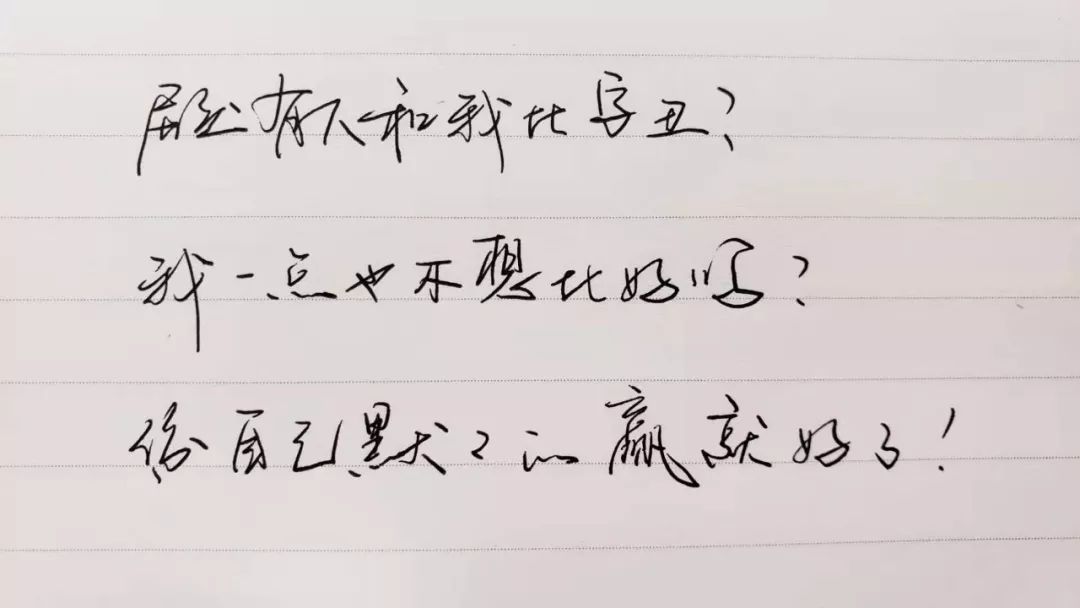 居然有人和我比字丑？
我一点也不想比好吗？
你自己默々的赢就好了！